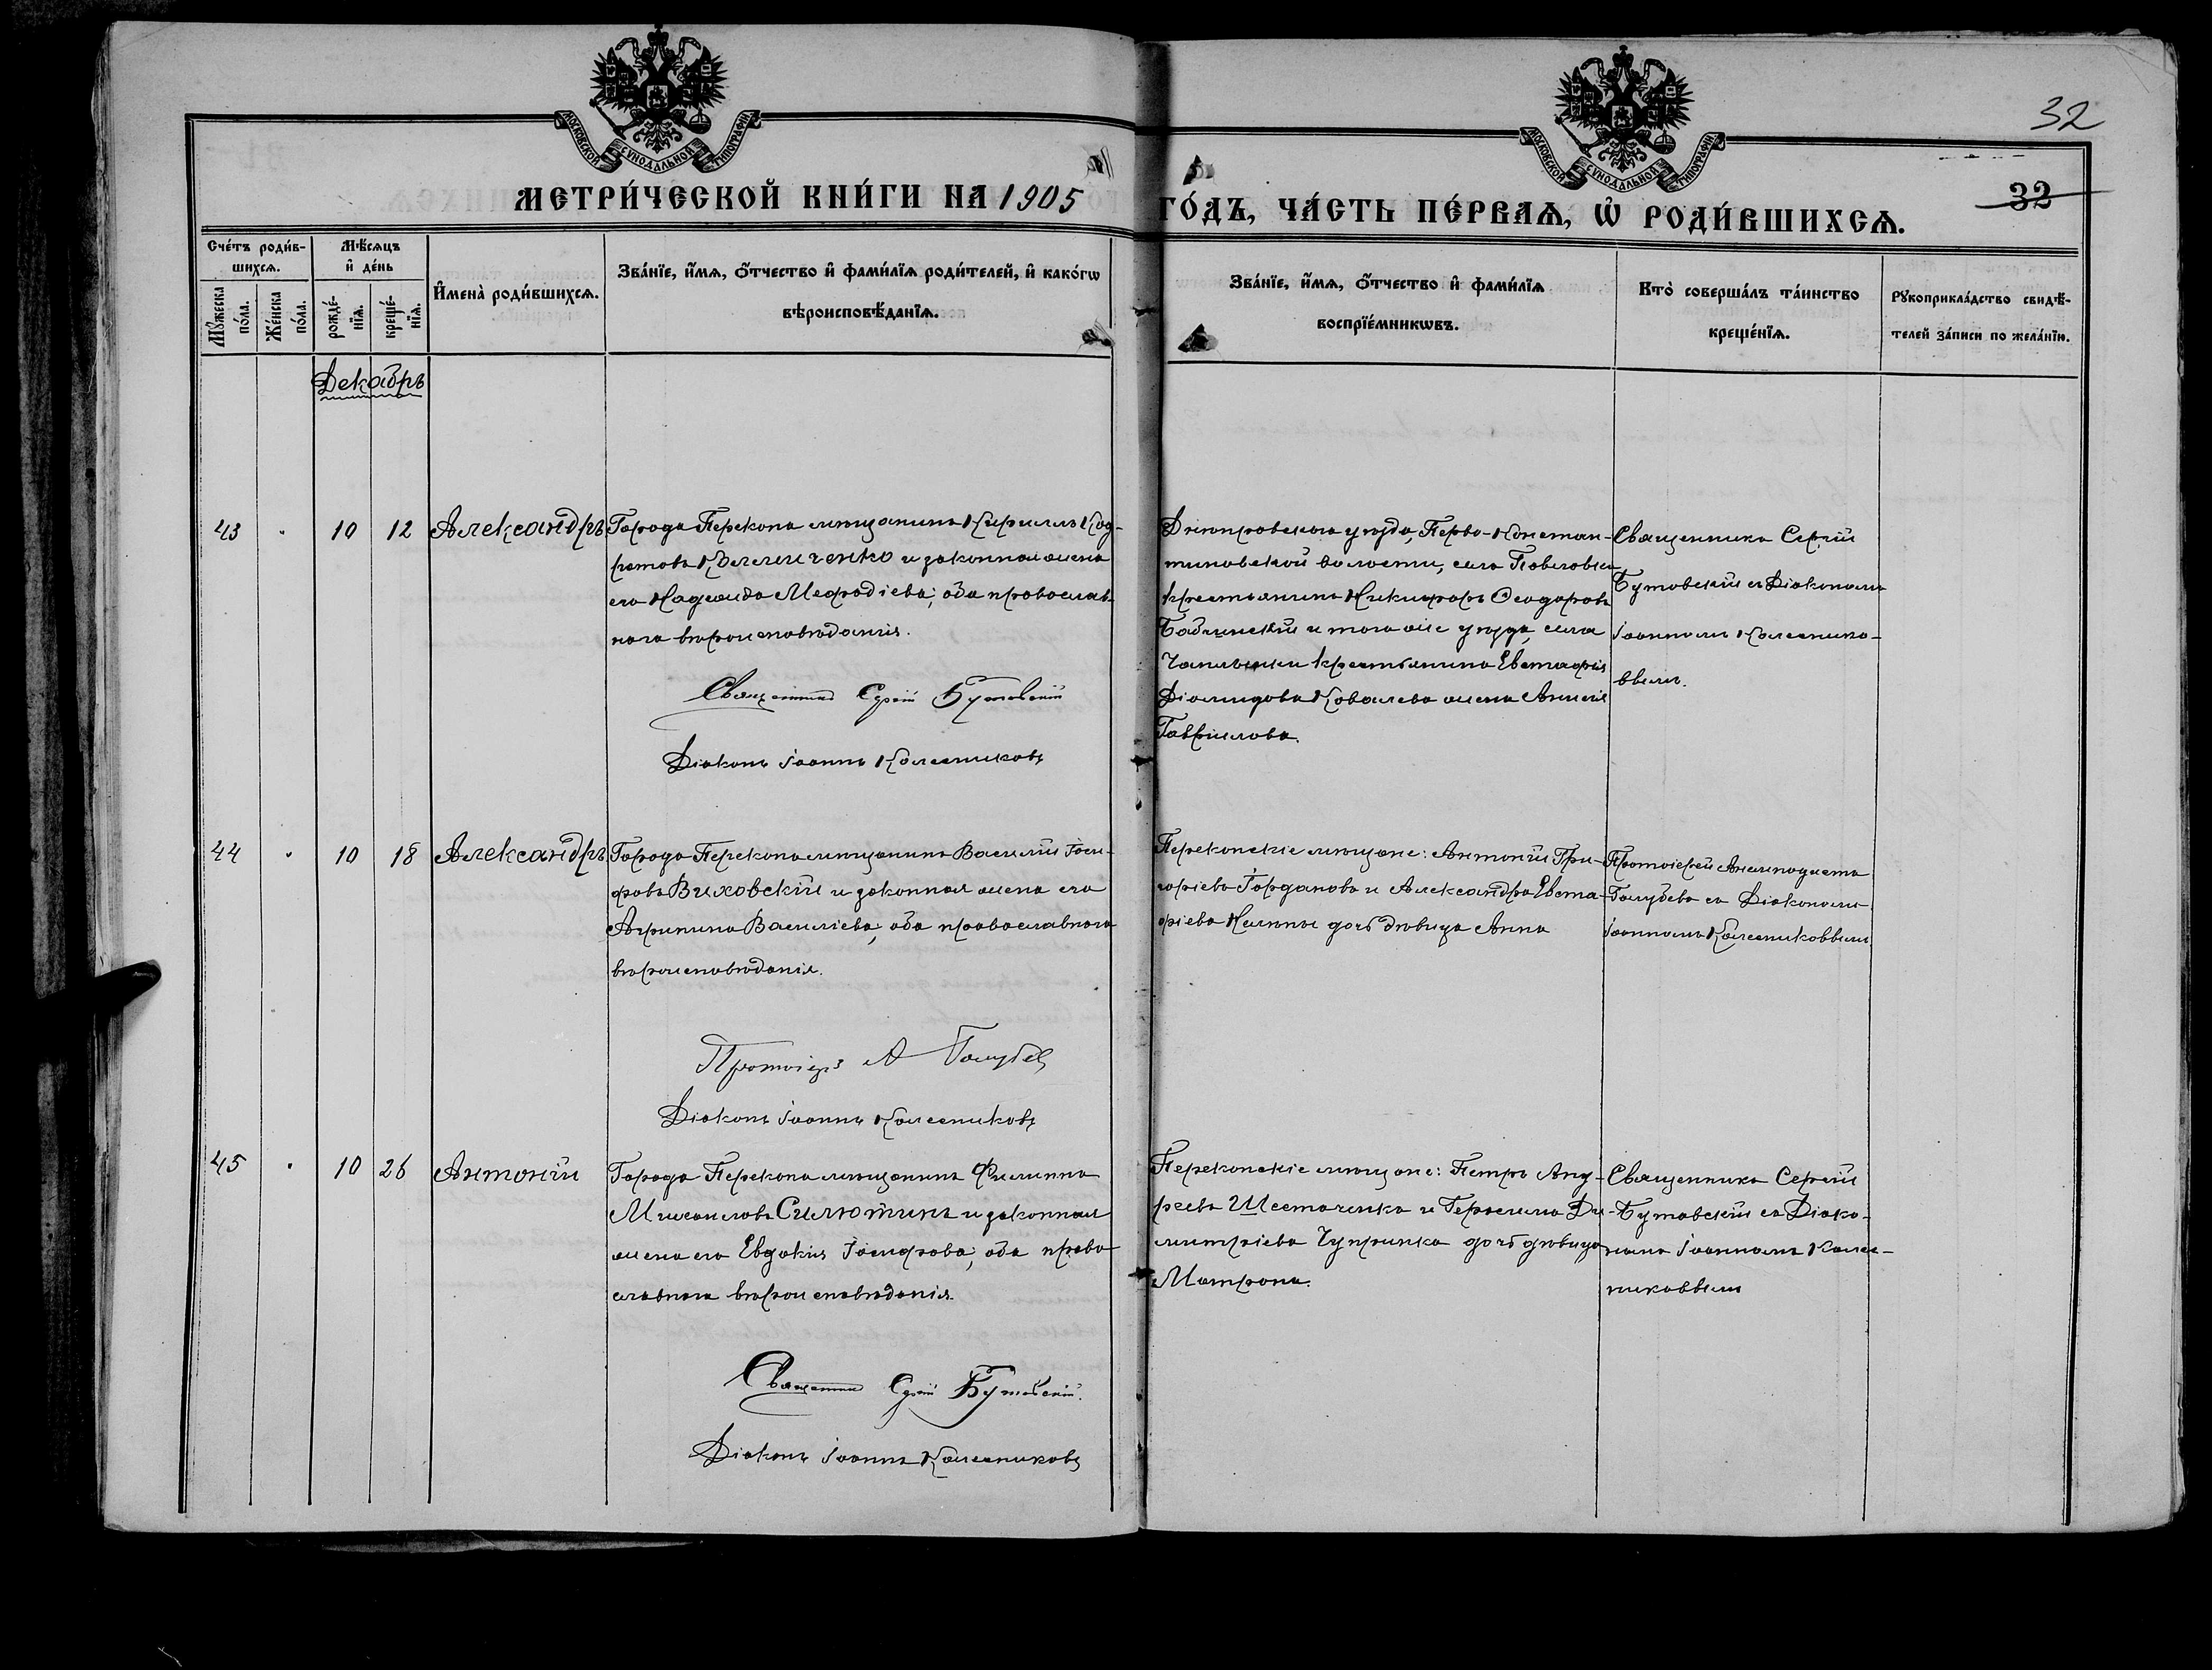 МОСКОВСКОЙ СѴНОДАЛЬНОЙ ТИПОГРАФІИ
МОСКОВСКОЙ СѴНОДАЛЬНОЙ ТИПОГРАФІИ
32
32
МЕТРИ́ЧЕСКОЙ КНИ́ГИ НА 1905 ГО́ДЪ, ЧА́СТЬ ПЕ́РВАѦ, Ѡ҆ РОДИ́ВШИХСѦ.
Сче́тъ роди́в-
шихсѧ.
Мꙋ́жеска по́ла.
Же́нска по́ла.
Мѣ́сѧцъ
и҆ де́нь
рожде́-
нїѧ.
креще́-
нїѧ.
И҆мена̀ роди́вшихсѧ.
Зва́нїе, и҆́мѧ, ѻ҆́тчество и҆ фами́лїѧ роди́телей, и҆ како́гѡ
вѣроисповѣ́данїѧ.
Зва́нїе, и҆́мѧ, ѻ҆́тчество и҆ фами́лїѧ
воспрїе́мникѡвъ.
Кто̀ соверша́лъ та́инство
креще́нїѧ.
Рꙋкоприкла́дство свидѣ́-
телей за́писи по жела́нїи.
Декабрь
43 " 10 12 Александръ
Города Перекопа мѣщанинъ Кириллъ Код-
ратовъ и законная жена
его Надежда Меѳодіева, оба православ-
наго вѣроисповѣданія.
Священникъ Сергій Бутовскій
Діаконъ Іоаннъ Колесниковъ
Днѣпровскаго уѣзда, Перво-Констан-
тиновской волости, села Павловки
крестьянинъ Никифоръ Ѳеодоровъ
и того же уѣзда, села
Чаплынки крестьянина Евстафія
Діомидова Ковалева жена Анисія
Гаврилова.
Священникъ Сергій
Бутовскій съ Діакономъ
Іоанномъ Колеснико-
вымъ.
44 " 10 18 Александръ
Города Перекопа мѣщанинъ Василій Іоси-
фовъ Виховскій и законная жена его
Агрипина Василіева, оба православнаго
вѣроисповѣданія.
Протоіерей А Голубев
Діаконъ Іоаннъ Колесниковъ
Перекопскіе мѣщане: Антоній Гри-
горіевъ и Александра Евста-
фіева дочь дѣвица Анна
Протоіерей Анемподистъ
Голубевъ съ Діакономъ
Іоанномъ Колесниковымъ
45 " 10 26 Антоній
Города Перекопа мѣщанинъ Филиппъ
Михаиловъ Силютинъ и законная
жена его Евдокія Іосифова, оба право
славнаго вѣроисповѣданія.
Священникъ Сергій Бутовскій.
Діаконъ Іоаннъ Колесниковъ
Перекопскіе мѣщане: Петръ Анд-
реевъ Шестаченко и Герасима Ди-
митріева Чупринка дочь дѣвица
Матрона.
Священникъ Сергій
Бутовскій съ Діако-
номъ Іоанномъ Колес-
никовымъ